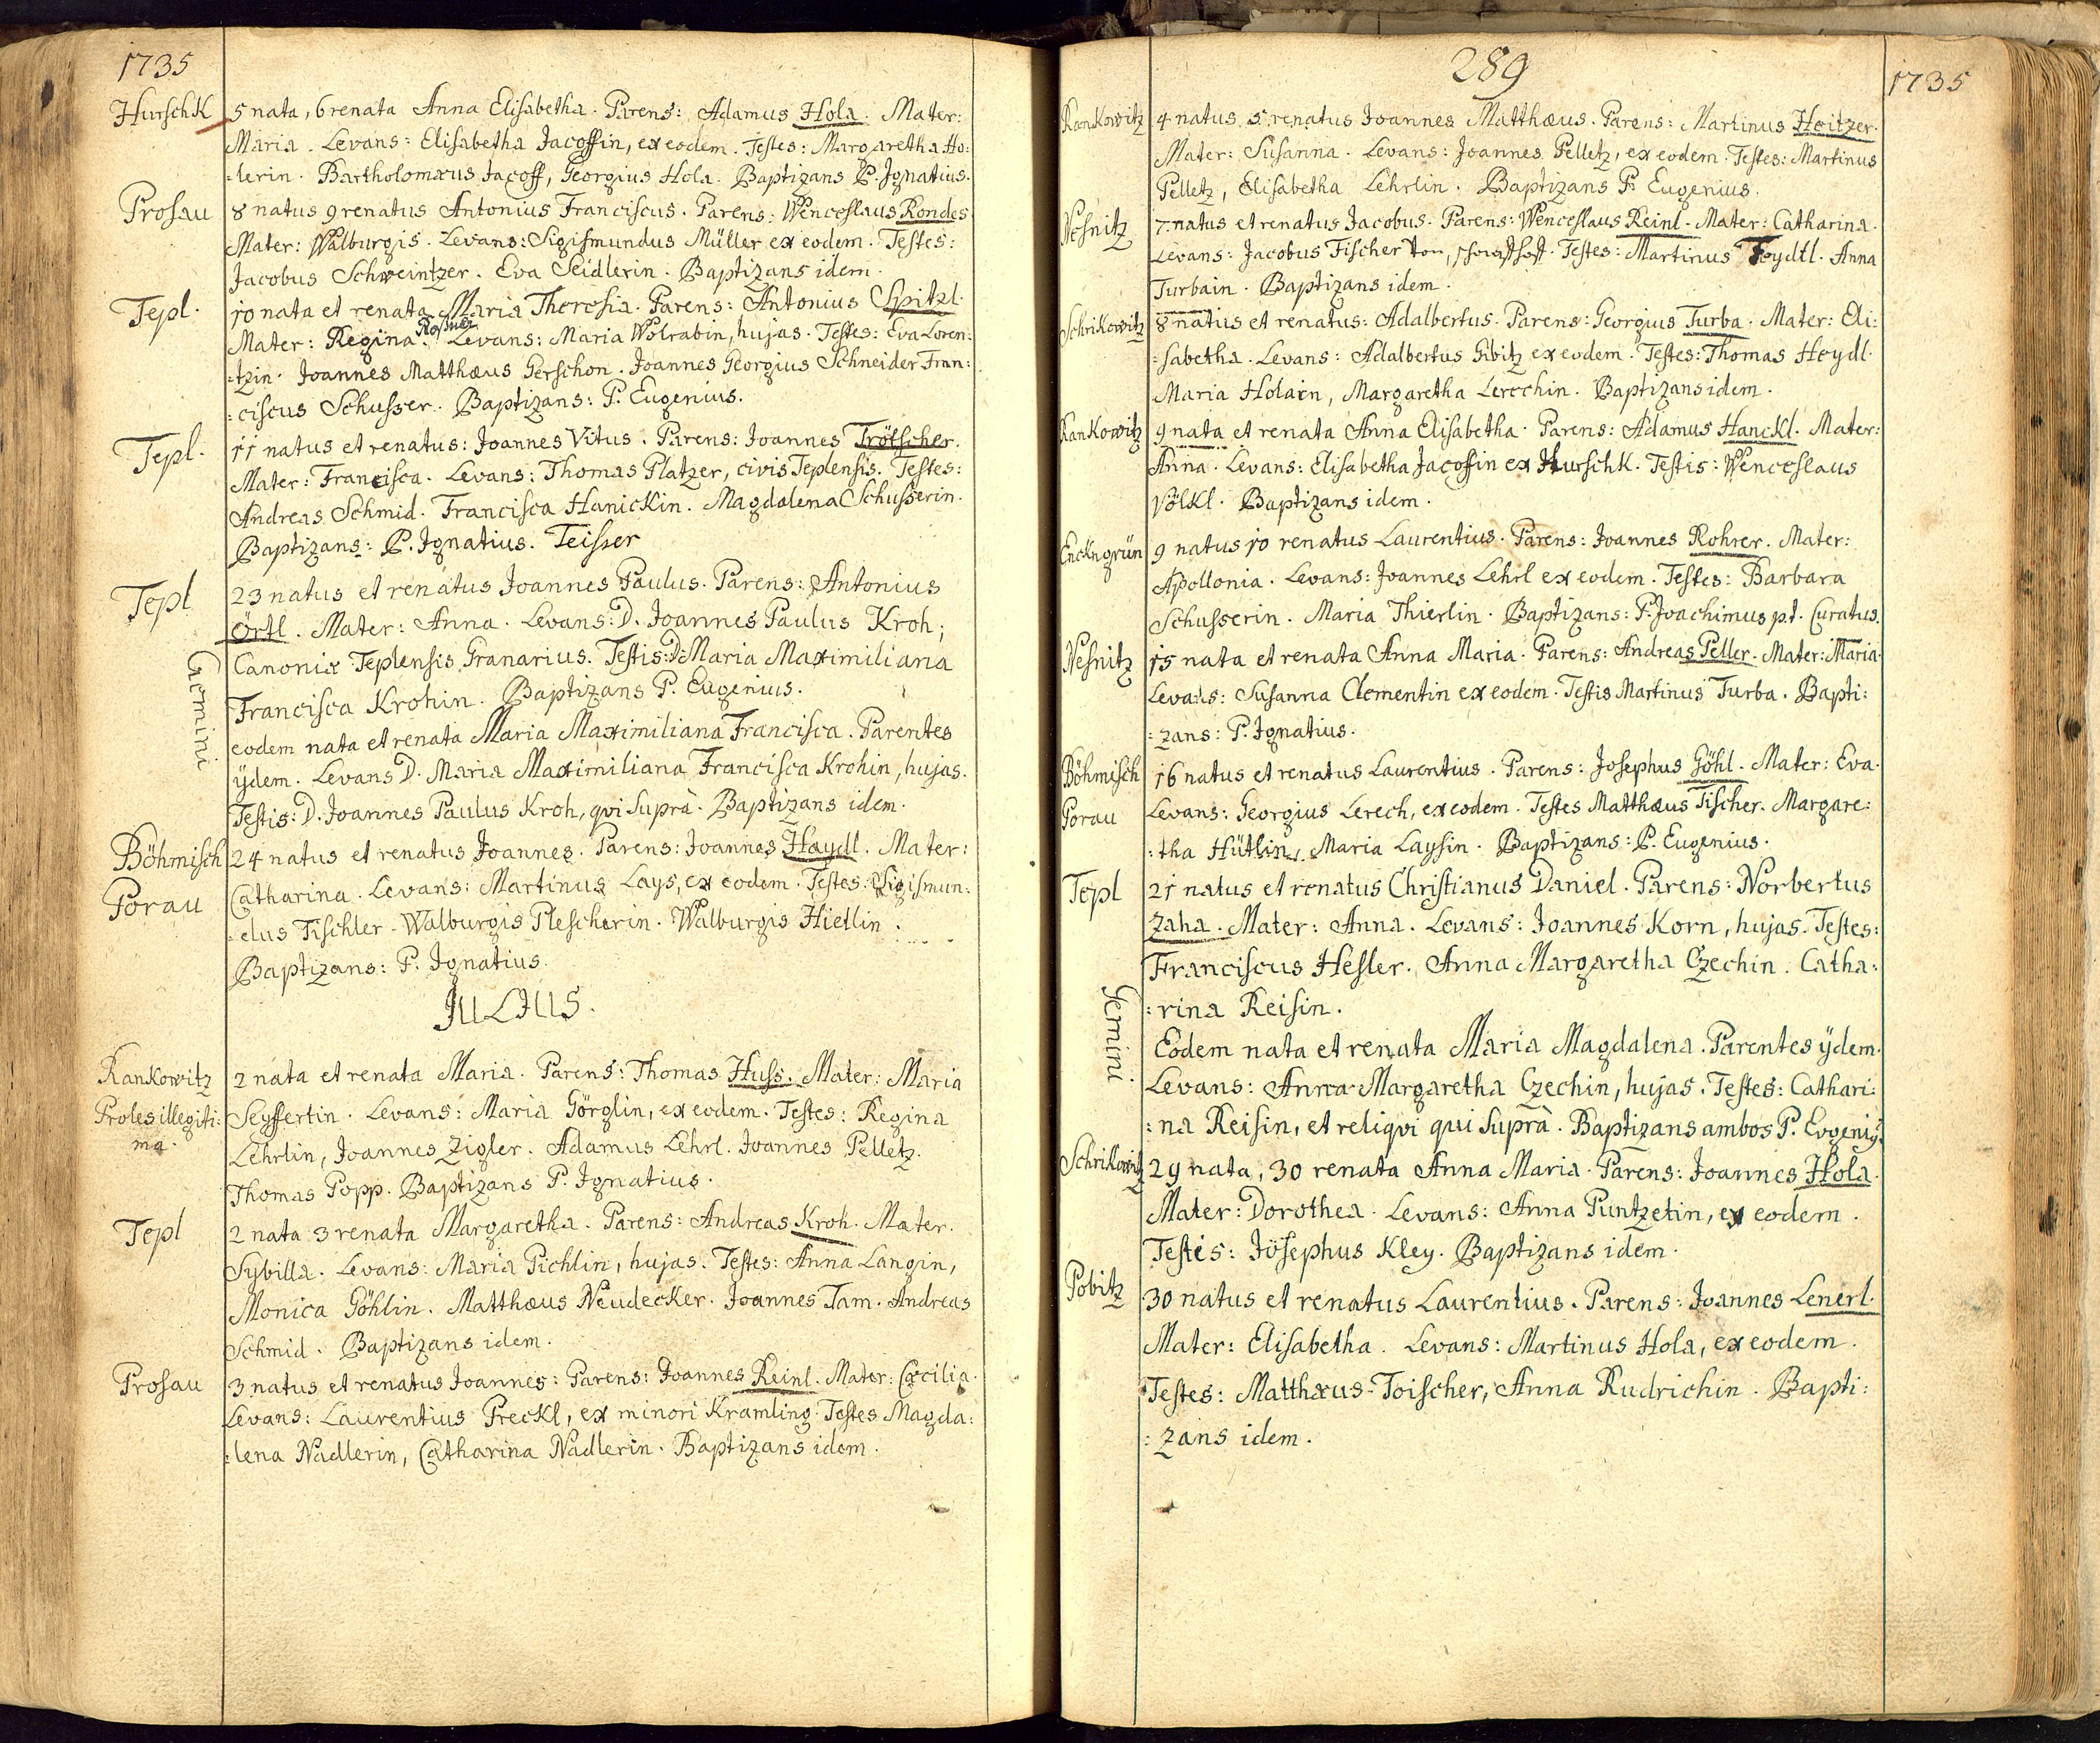 1735
Hurschk 5 nata, 6 renata Anna Elisabetha. Parens: Adamus Hola. Mater:
Maria. Levans: Elisabetha Jacoffin, ex eodem. Testes: Margaretha Ho:
:lerin. Bartholomæus Jacoff, Georgius Hola. Baptizans P. Ignatius.
Prosau 8 natus 9 renatus Antonius Franciscus. Parens: Wenceslaus Rondes
Mater: Walburgis. Levans: Sigismundus Müller ex eodem. Testes:
Jacobus Schweintzer. Eva Seidlerin. Baptizans idem.
Tepl. 10 nata et renata Maria Theresia. Parens: Antonius Spitzl.
Mater: Regina. Levans: Maria Wolrabin, hujas. Testes: Eva Loren:
:tzin. Joannes Matthæus Gerschon. Joannes Georgius Schneider Fran:
:ciscus Schusser. Baptizans: P. Eugenius.
Tepl. 11 natus et renatus: Joannes Vitus. Parens: Joannes Trötscher.
Mater: Francisca. Levans: Thomas Platzer, civis Teplensis. Testes:
Andreas Schmid. Francisca Hanickin. Magdalena Schusserin.
Baptizans: P. Ignatius. Teisser
Tepl 23 natus et renatus Joannes Paulus. Parens: Antonius
Örtl. Mater: Anna. Levans: D. Joannes Paulus Kroh;
Gemini
Canoniæ Teplensis Granarius. Testis: D. Maria Maximiliana
Francisca Krohin. Baptizans P. Eugenius.
eodem nata et renata Maria Maximiliana Francisca. Parentes
ÿdem. Levans D. Maria Maximiliana Francisca Krohin, hujas.
Testis: D. Joannes Paulus Kroh, qvi suprà. Baptizans idem.
Böhmisch 24 natus et renatus Joannes. Parens: Joannes Haydl. Mater:
Porau Catharina. Levans: Martinus Lays, ex eodem. Testes: Sigismun:
:dus Fischler. Walburgis Plescherin. Walburgis Hietlin.
Baptizans: P. Ignatius.
JULIUS.
Rankowitz 2 nata et renata Maria. Parens: Thomas Huss. Mater: Maria
Proles illegiti: Seyffertin. Levans: Maria Görglin, ex eodem. Testes: Regina
ma. Lehrlin, Joannes Zigler. Adamus Lehrl. Joannes Pelletz.
Thomas Popp. Baptizans P. Ignatius.
Tepl 2 nata 3 renata Margaretha. Parens: Andreas Kroh. Mater.
Sybilla. Levans: Maria Pichlin, hujas. Testes: Anna Langin,
Monica Göhlin. Matthæus Neudecker. Joannes Tam. Andreas
Schmid. Baptizans idem.
Prosau 3 natus et renatus Joannes: Parens: Joannes Reinl. Mater: Cæcilia.
Levans: Laurentius Preckl, ex minori Kramling. Testes Magda:
:lena Nadlerin, Catharina Nadlerin. Baptizans idem.
289
1735
Rankowitz 4 natus 5 renatus Joannes Matthæus. Parens: Martinus Heitzer.
Mater: Susanna. Levans: Joannes Pelletz, ex eodem. Testes: Martinus
Pelletz, Elisabetha Lehrlin. Baptizans P. Eugenius.
Nesnitz 7 natus et renatus Jacobus. Parens: Wenceslaus Reinl. Mater: Catharina.
Levans: Jacobus Fischer Testes: Martinus Feydtl. Anna
Turbain. Baptizans idem.
Schrikowitz 8 natus et renatus: Adalbertus. Parens: Georgius Turba. Mater: Eli:
:sabetha. Levans: Adalbertus Gibitz ex eodem. Testes: Thomas Heydl.
Maria Holain, Margaretha Lerechin. Baptizans idem.
Rankowitz 9 nata et renata Anna Elisabetha. Parens: Adamus Hanckl. Mater:
Anna. Levans: Elisabetha Jacoffin ex Hurschk. Testis: Wenceslaus
Völkl. Baptizans idem.
Enckngrün 9 natus 10 renatus Laurentius. Parens: Joannes Rohrer. Mater:
Apollonia. Levans: Joannes Lehrl ex eodem. Testes: Barbara
Schusserin. Maria Thierlin. Baptizans: P. Joachimus p.t. Curatus.
Nesnitz 15 nata et renata Anna Maria. Parens: Andreas Peller. Mater: Maria.
Levans: Susanna Clementin ex eodem. Testis Martinus Turba. Bapti:
:zans: P. Ignatius.
Böhmisch 16 natus et renatus Laurentius. Parens: Josephus Göhl. Mater: Eva.
Porau Levans: Georgius Lerech, ex eodem. Testes Matthæus Fischer. Margare:
:tha Hütlin, Maria Laysin. Baptizans: P. Eugenius.
Tepl 21 natus et renatus Christianus Daniel. Parens: Norbertus
Zaha. Mater: Anna. Levans: Joannes Korn, hujas. Testes:
Franciscus Hesler. Anna Margaretha Czechin. Catha:
:rina Reisin.
Gemini
Eodem nata et renata Maria Magdalena. Parentes ÿdem.
Levans: Anna Margaretha Czechin, hujas. Testes: Cathari:
:na Reisin, et reliqvi qui suprà. Baptizans ambos P. Evgeniÿ.
Schrikowitz 29 nata, 30 renata Anna Maria. Parens: Joannes Hola.
Mater: Dorothea. Levans: Anna Puntzetin, ex eodem.
Testis: Josephus Kley. Baptizans idem.
Pobitz 30 natus et renatus Laurentius. Parens: Joannes Lenerl.
Mater: Elisabetha. Levans: Martinus Hola, ex eodem.
Testes: Matthæus Toischer, Anna Rudrichin. Bapti:
:zans idem.